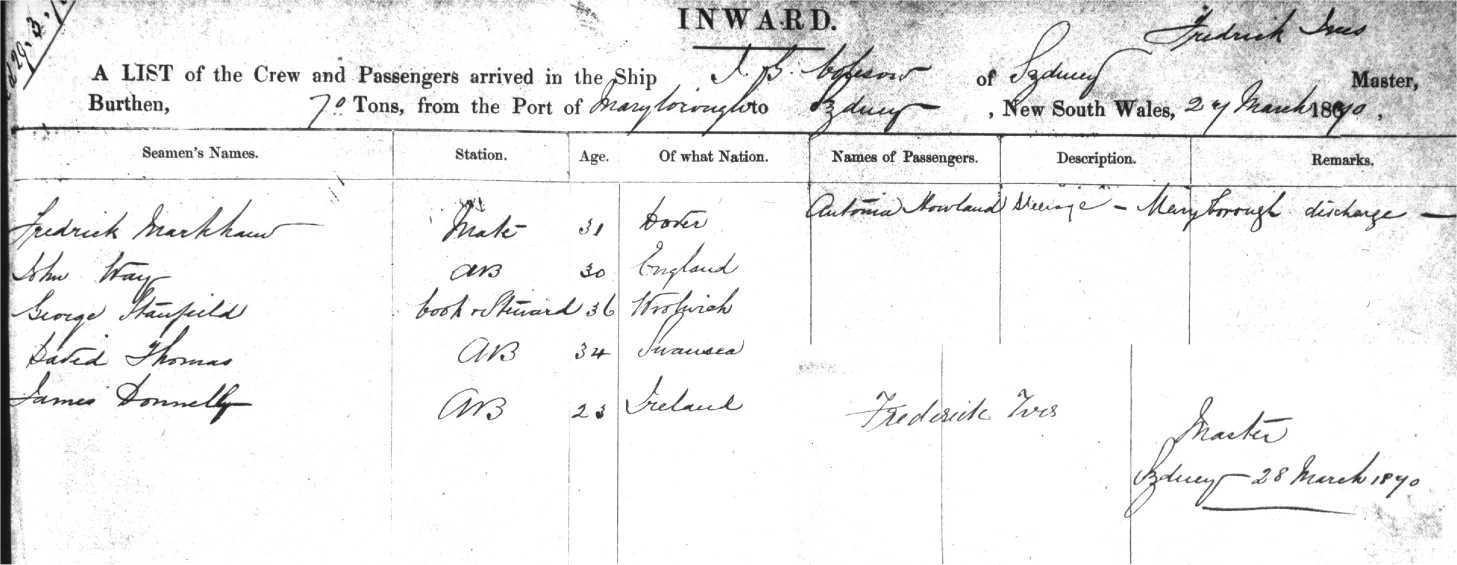 29.3.
INWARD.
Fredrick Ives
A LIST of the Crew and Passengers arrived in the Ship J. B. of Sydney Master,
Burthen, 70 Tons, from the Port of Maryborough to Sydney, New South Wales, 27 March 1870,
Seamen's Names. Station. Age. Of what Nation. Names of Passengers. Description. Remarks.
Antonia Howland Steerage - Maryborough discharge -
Fredrick Markham Mate 31 Dover
John Way AB 30 England
George Stanfield Cook & Steward 36 Woolwich
David Thomas AB 34 Swansea
James Donnelly AB 23 Ireland
Frederick Ives
Master
Sydney 28 March 1870